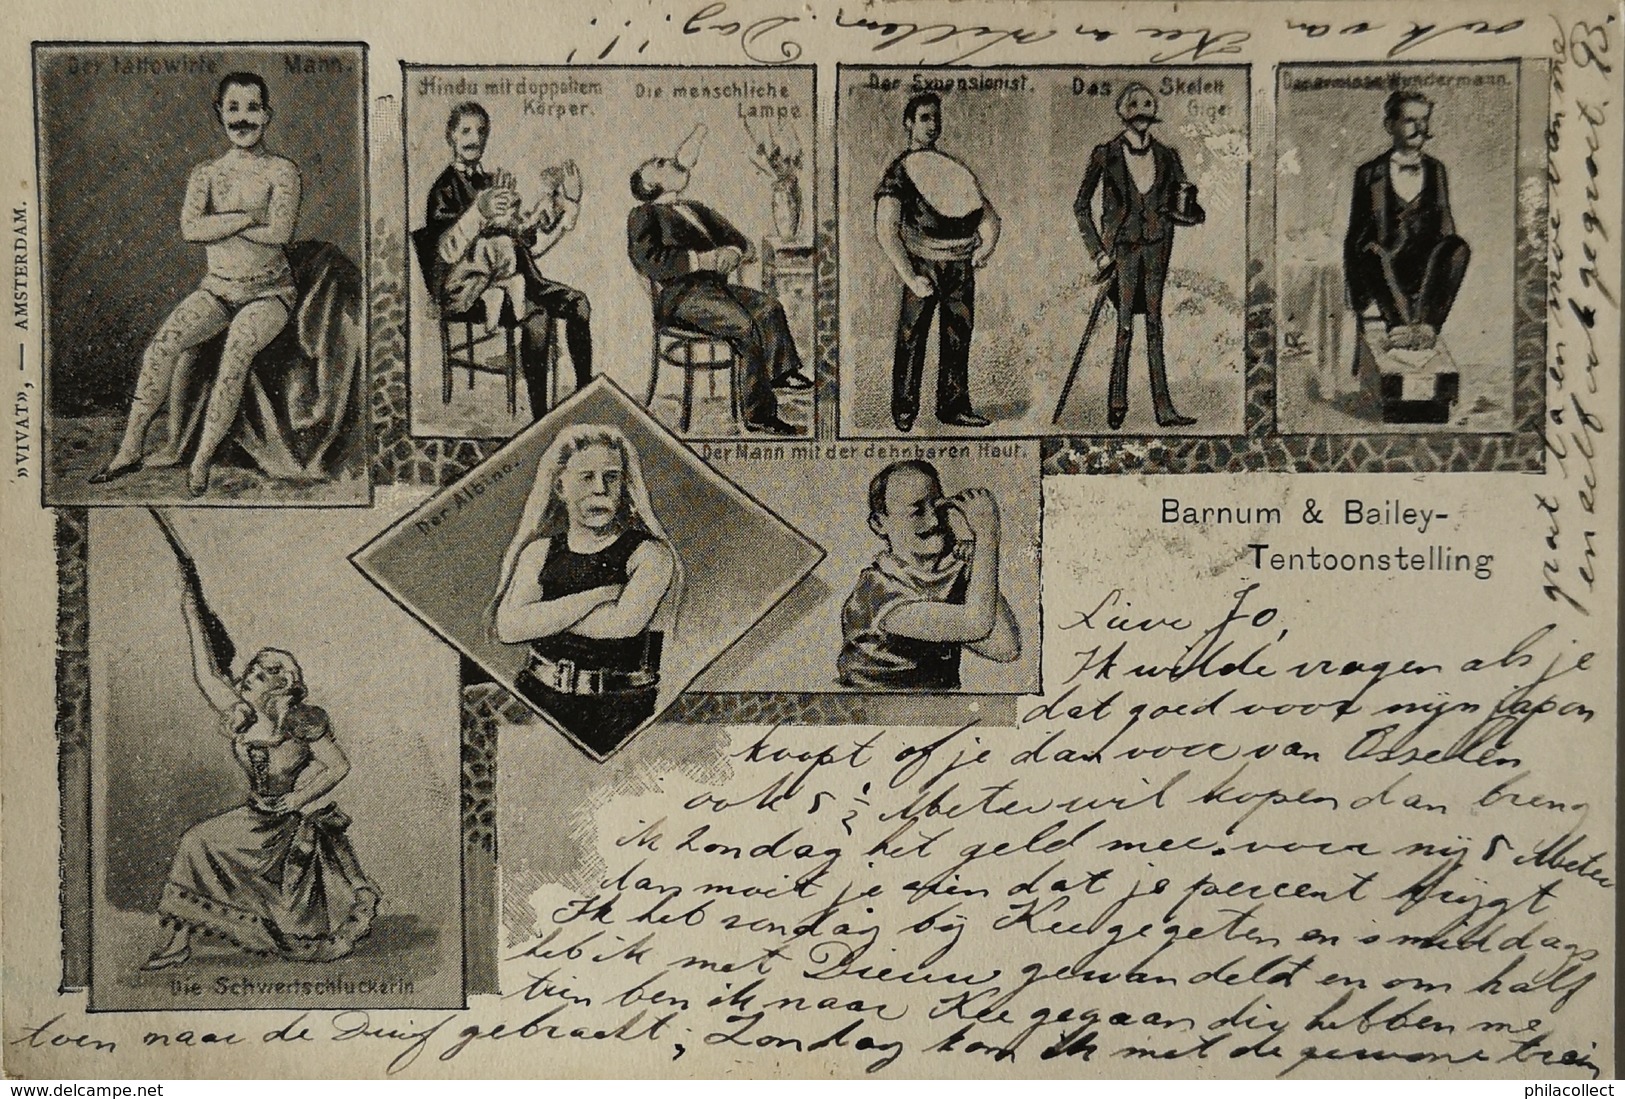 Der tattowirte Mann.
Hindu mit doppeltem
Körper.
Die menschliche
Lampe
Der Expansionist.
Das Skelett
Gige
Der armlose Wundermann.
R.
»VIVAT», — AMSTERDAM.
Der Albino.
Der Mann mit der dehnbaren Haut.
Die Schwertschluckerin
Barnum & Bailey-
Tentoonstelling
Lieve Jo,
Ik wilde vragen als je
dat goed voor mijn japon
koopt of je dan voor van Osselen
ook 5 ½ Meter wil kopen dan breng
ik Zondag het geld mee. voor mij 5 Meter
dan moet je zien dat je percent krijgt
Ik heb zondag bij Kee gegeten en s middags
heb ik met Dieuw gewandeld en om half
tien ben ik naar Kee gegaan die hebben me
toen naar de Duif gebracht; Zondag kom ik met de gewone trein
gaat Pa en moe van me
en zelf ook gegroet. B.
ook van Kee en Willem. Dag!!!
philacollect
www.delcampe.net